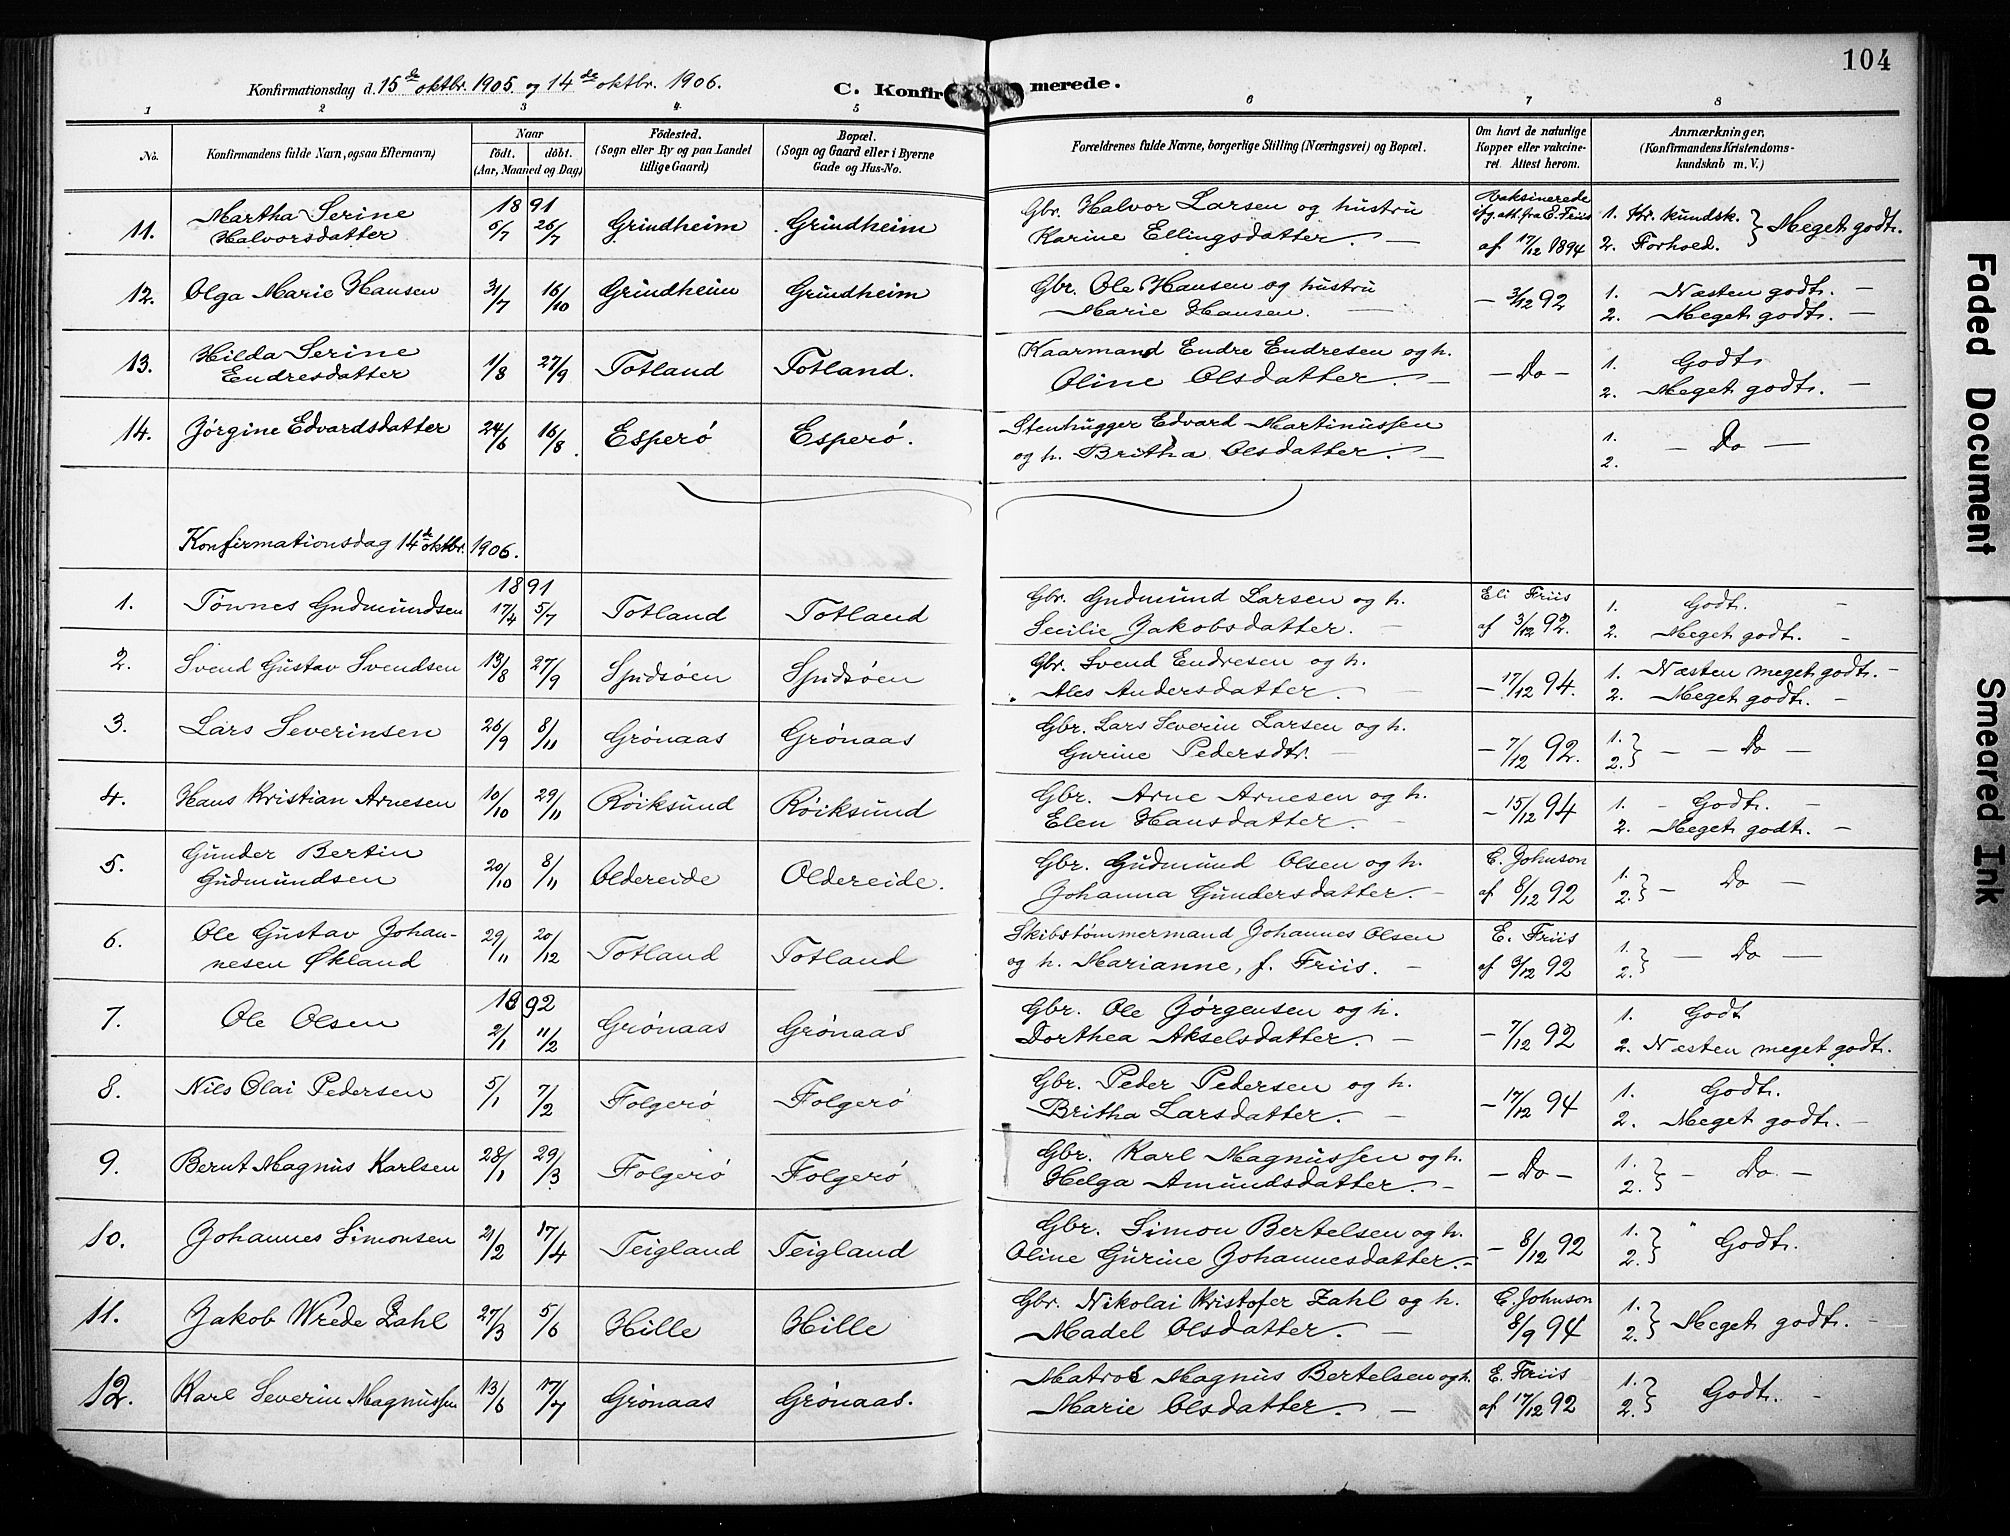 104
Konfirmationsdag d. 15de oktbr. 1905. og 14de oktbr. 1906. C. Konfirmerede.
1 2 3 4 5 6 7 8
No. Konfirmandens fulde Navn, ogsaa Efternavn) Naar födt. döbt. (Aar, Maaned og Dag) Födested. (Sogn eller By og paa Landet tillige Gaard) Bopæl. (Sogn og Gaard eller i Byerne Gade og Hus-No. Forældrenes fulde Navne, borgerlige Stilling (Næringsvei) og Bopæl. Om havt de naturlige Kopper eller vakcineret. Attest herom. Anmærkninger. (Konfirmandens Kristendomskundskab m. V.)
11. Martha Serine Halvorsdatter 1891 6/7 26/7 Grindheim Grindheim Gbr. Halvor Larsen og hustru Karine Ellingsdatter. — Vaksinerede ifg. att. fra E. Friis af 17/12 1894 1. Kr. kundsk. 2. Forhold. } Meget godt.
12. Olga Marie Hansen 31/7 16/10 Grindheim Grindheim Gbr. Ole Hansen og hustru Marie Hansen. — — 3/12 92 1. Næsten godt. — 2. Meget godt. —
13. Hilda Serine Endresdatter 1/8 27/9 Totland Totland. Kaarmand Endre Endresen og h. Oline Olsdatter. — — Do — 1. Godt 2. Meget godt. —
14. Jørgine Edvardsdatter 24/6 16/8. Esperö Esperö. Stenhugger Edvard Martinussen og h. Britha Olsdatter. — 1. 2. — Do —
Konfirmationsdag 14de oktbr. 1906.
1. Tönnes Gudmundsen 1891 17/4 5/7 Totland Totland Gbr. Gudmund Larsen og h. Secilie Jakobsdatter. — Eli Friis af 3/12 92. 1. Godt. — 2. Meget godt. —
2. Svend Gustav Svendsen 13/8 27/9 Spidsöen Spidsöen Gbr. Svend Endresen og h. Ales Andersdatter. — — 17/12 94. 1. Næsten meget godt. — 2. Meget godt. —
3. Lars Severinsen 26/9 8/11 Grönaas Grönaas Gbr. Lars Severin Larsen og h. Gurine Pedersdtr. — — 7/12 92. 1. 2. } — — Do —
4. Hans Kristian Arnesen 10/10 29/11 Röiksund Röiksund Gbr. Arne Arnesen og h. Elen Hansdatter. — — 15/12 94 1. - Godt. — 2. Meget godt. —
5. Gunder Bertin Gudmundsen 20/10 8/11 Oldereide Oldereide. Gbr. Gudmund Olsen og h. Johanna Gundersdatter. — E. Johnson af 8/12 92 1. 2. } — Do —
6. Ole Gustav Johannesen Økland 29/11 20/12 Totland Totland Skibstømmermand Johannes Olsen og h. Marianne, f. Friis. — E. Friis af 3/12 92 1. 2. } — Do —
7. Ole Olsen 1892 2/1 11/2 Grönaas Grönaas Gbr. Ole Jørgensen og h. Dorthea Akselsdatter. — — 7/12 92 1. Godt 2. Næsten meget godt.
8. Nils Olai Pedersen 5/1 7/2 Folgerö Folgerö Gbr. Peder Pedersen og h. Britha Larsdatter. — — 17/12 94 1. Godt. 2. Meget godt. —
9. Bernt Magnus Karlsen 28/1 29/3 Folgerö Folgerö Gbr. Karl Magnussen og h. Helga Amundsdatter. — — Do — 1. 2. } — Do —
10. Johannes Simonsen 21/2 17/4 Teigland Teigland Gbr. Simon Bertelsen og h. Oline Gurine Johannesdatter. — — 8/12 92 1. 2. } Godt.
11. Jakob Wrede Zahl 27/3 5/6 Hille Hille Gbr. Nikolai Kristofer Zahl og h. Madel Olsdatter. — E. Johnson 8/9 94 1. 2. } Meget godt. —
12. Karl Severin Magnussen 13/6 17/7 Grönaas Grönaas. Matros Magnus Bertelsen og h. Marie Olsdatter. — E. Friis af 17/12 92 1. 2. } Godt. —
Faded Document
Smeared Ink